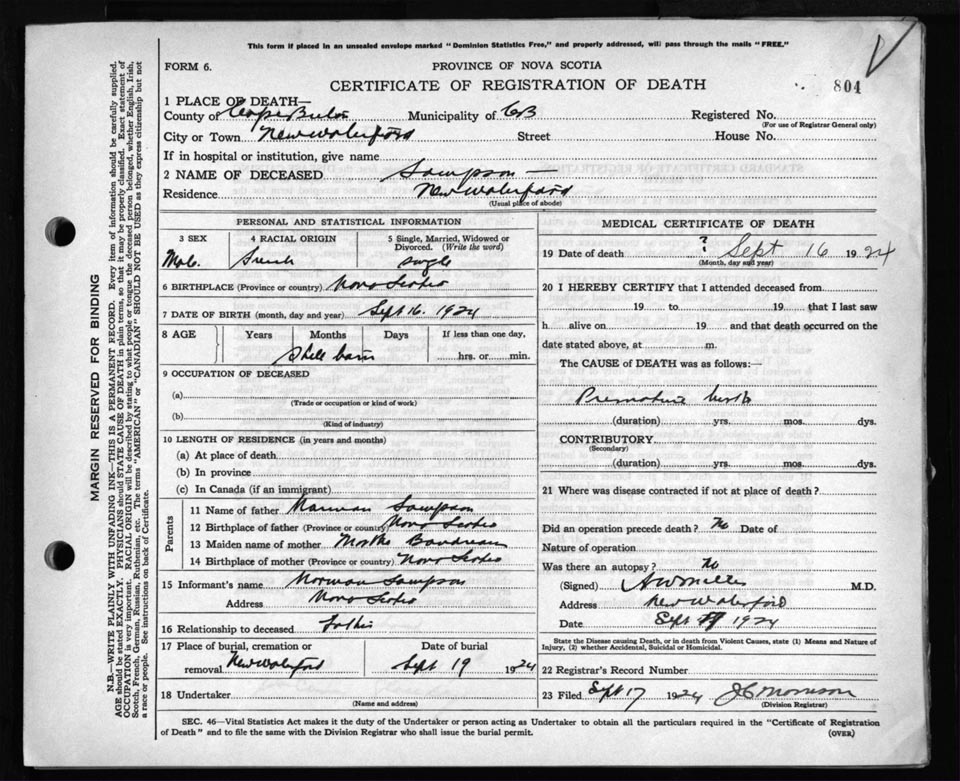 This form if placed in an unsealed envelope marked "Dominion Statistics Free," and properly addressed, will pass through the mails "FREE."
FORM 6.
PROVINCE OF NOVA SCOTIA
CERTIFICATE OF REGISTRATION OF DEATH
804
1 PLACE OF DEATH—
County of Cape Breton Municipality of CB Registered No.
(For use of Registrar General only)
City or Town New Waterford Street House No.
If in hospital or institution, give name
2 NAME OF DECEASED Sampson —
Residence New Waterford
(Usual place of abode)
PERSONAL AND STATISTICAL INFORMATION
3 SEX 4 RACIAL ORIGIN 5 Single, Married, Widowed or Divorced. (Write the word)
Male French single
6 BIRTHPLACE (Province or country) Nova Scotia
7 DATE OF BIRTH (month, day and year) Sept 16. 1924
8 AGE Years Months Days If less than one day,
hrs. or min.
9 OCCUPATION OF DECEASED
(a)
(Trade or occupation or kind of work)
(b)
(Kind of industry)
10 LENGTH OF RESIDENCE (in years and months)
(a) At place of death
(b) In province
(c) In Canada (if an immigrant)
Parents
11 Name of father Norman Sampson
12 Birthplace of father (Province or country) Nova Scotia
13 Maiden name of mother Boudreau
14 Birthplace of mother (Province or country) Nova Scotia
15 Informant's name Norman Sampson
Address Nova Scotia
16 Relationship to deceased Father
17 Place of burial, cremation or removal. New Waterford
Date of burial
Sept 19 1924
18 Undertaker
(Name and address)
MEDICAL CERTIFICATE OF DEATH
19 Date of death ? Sept 16 1924
(Month, day and year)
20 I HEREBY CERTIFY that I attended deceased from
19 to 19 that I last saw
h alive on 19 and that death occurred on the
date stated above, at m.
The CAUSE of DEATH was as follows:
Premature birth
(duration) yrs. mos. dys.
CONTRIBUTORY
(Secondary)
(duration) yrs. mos. dys.
21 Where was disease contracted if not at place of death?
Did an operation precede death? No Date of
Nature of operation
Was there an autopsy? No
(Signed) M.D.
Address New Waterford
Date Sept 1924
State the Disease causing Death, or in death from Violent Causes, state (1) Means and Nature of
Injury, (2) whether Accidental, Suicidal or Homicidal.
22 Registrar's Record Number
23 Filed Sept 17 1924 J C Morrison
(Division Registrar)
SEC. 46—Vital Statistics Act makes it the duty of the Undertaker or person acting as Undertaker to obtain all the particulars required in the "Certificate of Registration
of Death" and to file the same with the Division Registrar who shall issue the burial permit.
(OVER)
MARGIN RESERVED FOR BINDING
N.B.—WRITE PLAINLY WITH UNFADING INK—THIS IS A PERMANENT RECORD. Every item of information should be carefully supplied.
AGE should be stated EXACTLY. PHYSICIANS should STATE CAUSE OF DEATH in plain terms, so that it may be properly classified. Exact statement of
OCCUPATION is very important. RACIAL ORIGIN will be described by stating to what people or tongue the deceased person belonged, whether English, Irish,
Scotch, French, German, Russian, Ruthenian, etc. The terms "AMERICAN" or "CANADIAN" SHOULD NOT BE USED as they express citizenship but not
a race or people. See instructions on back of Certificate.